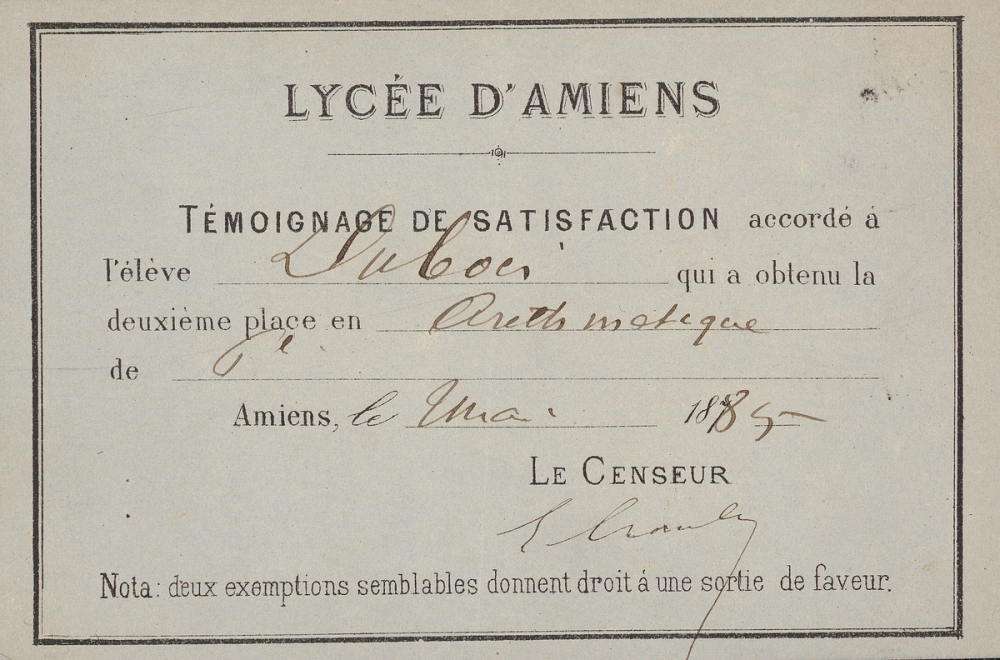 LYCÉE D'AMIENS
TÉMOIGNAGE DE SATISFACTION accordé á
l'élève Dubois qui a obtenu la
deuxième place en Arithmétique
de
Amiens, le Mai 1885
LE CENSEUR
Nota: deux exemptions semblables donnent droit á une sortie de faveur.